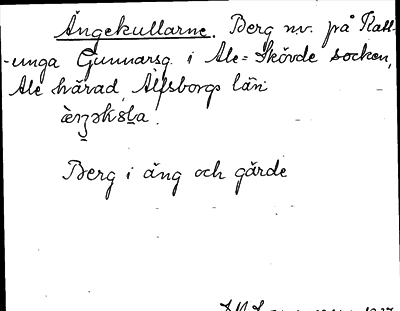 Ängekullarne. Berg nv. på Katt-
-unga Gunnarsg. i Ale-Skövde socken,
Ale härad, Älfsborgs län
Berg i äng och gärde